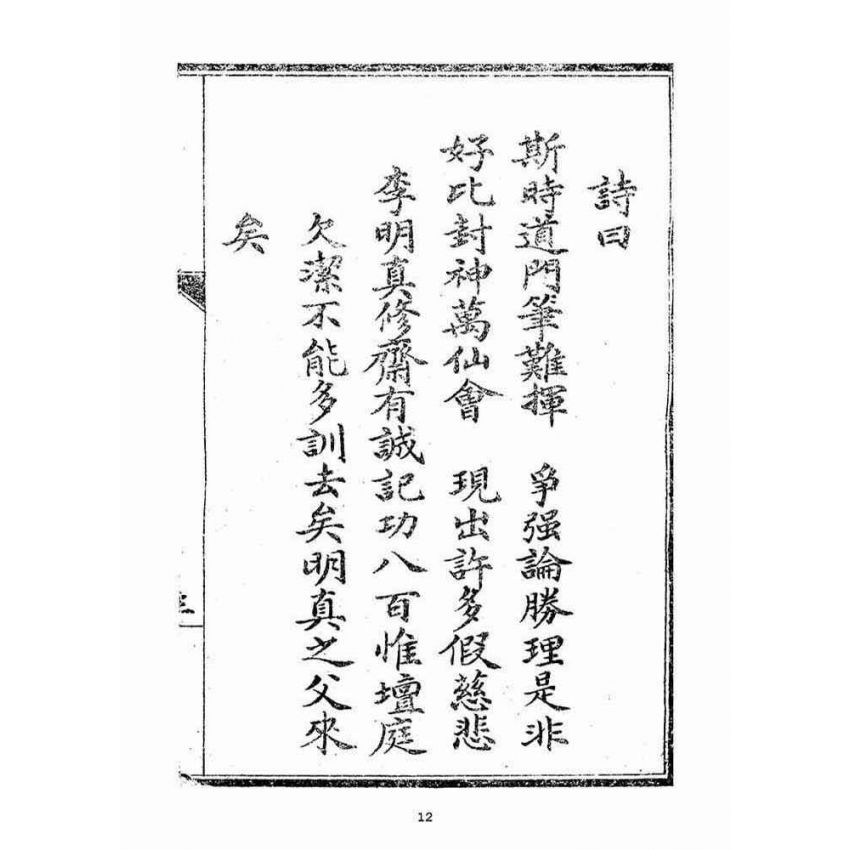 詩曰
斯時道門筆難揮　爭强論勝理是非
好比封神萬仙會　現出許多假慈悲
李明真修齋有誠記功八百惟壇庭
欠潔不能多訓去矣明真之父來
矣
12